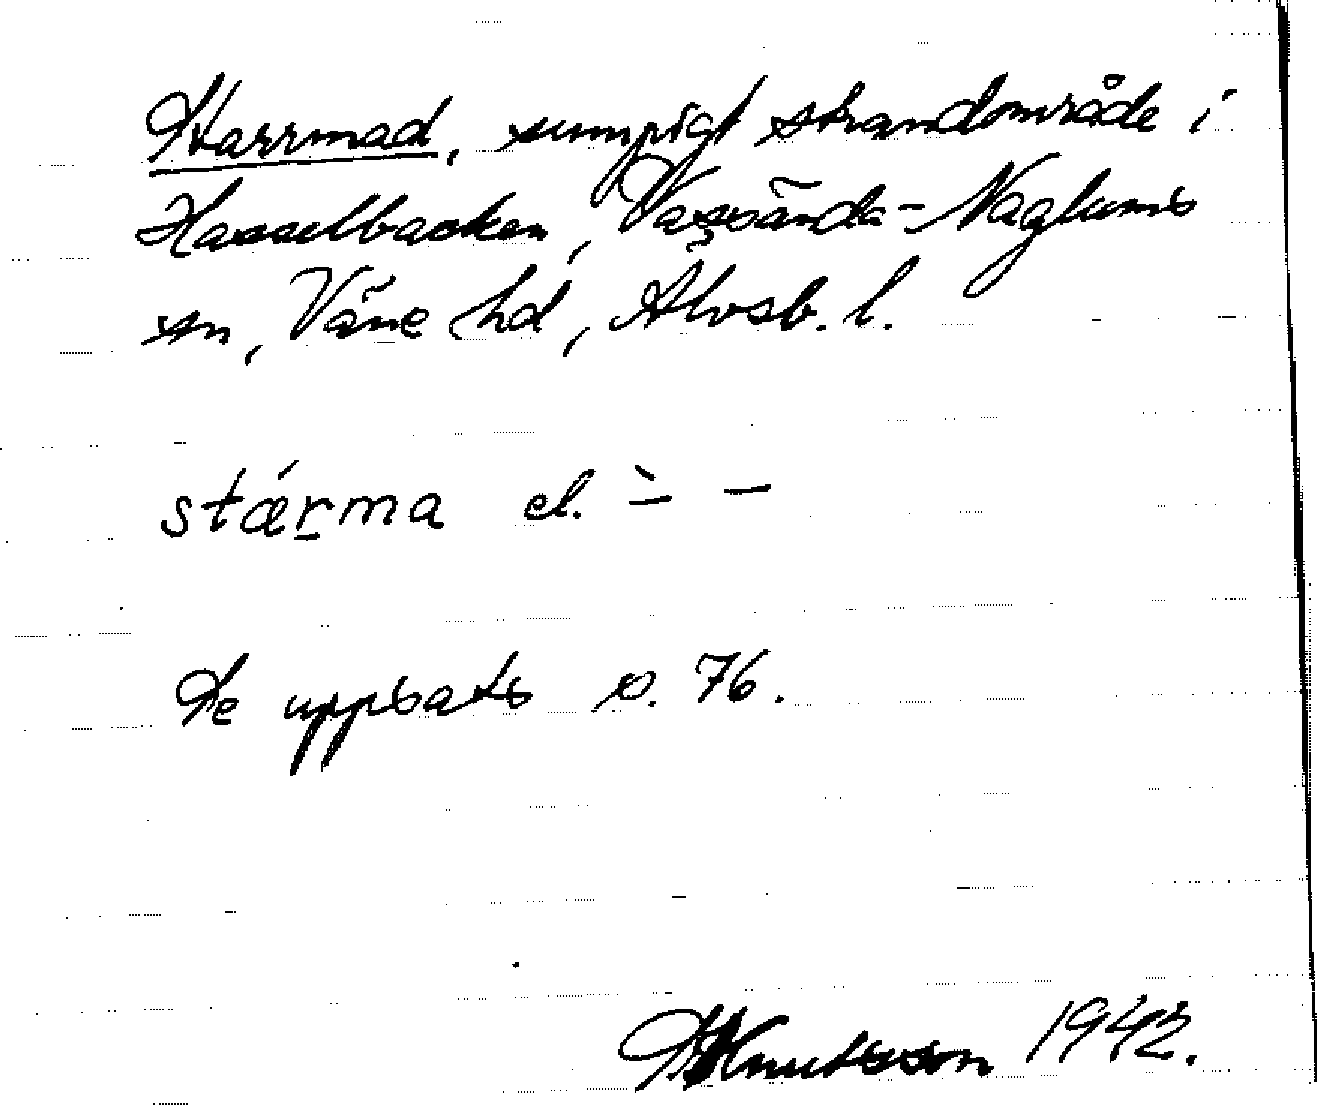 Starrmad, sumpigt strandområde i
Hasselbacken, Vassända-Naglums
sn, Väne hd, Älvsb. l.
stǽr̲ma el. –̀ –
Se uppsats s. 76.
Knutsson 1942.